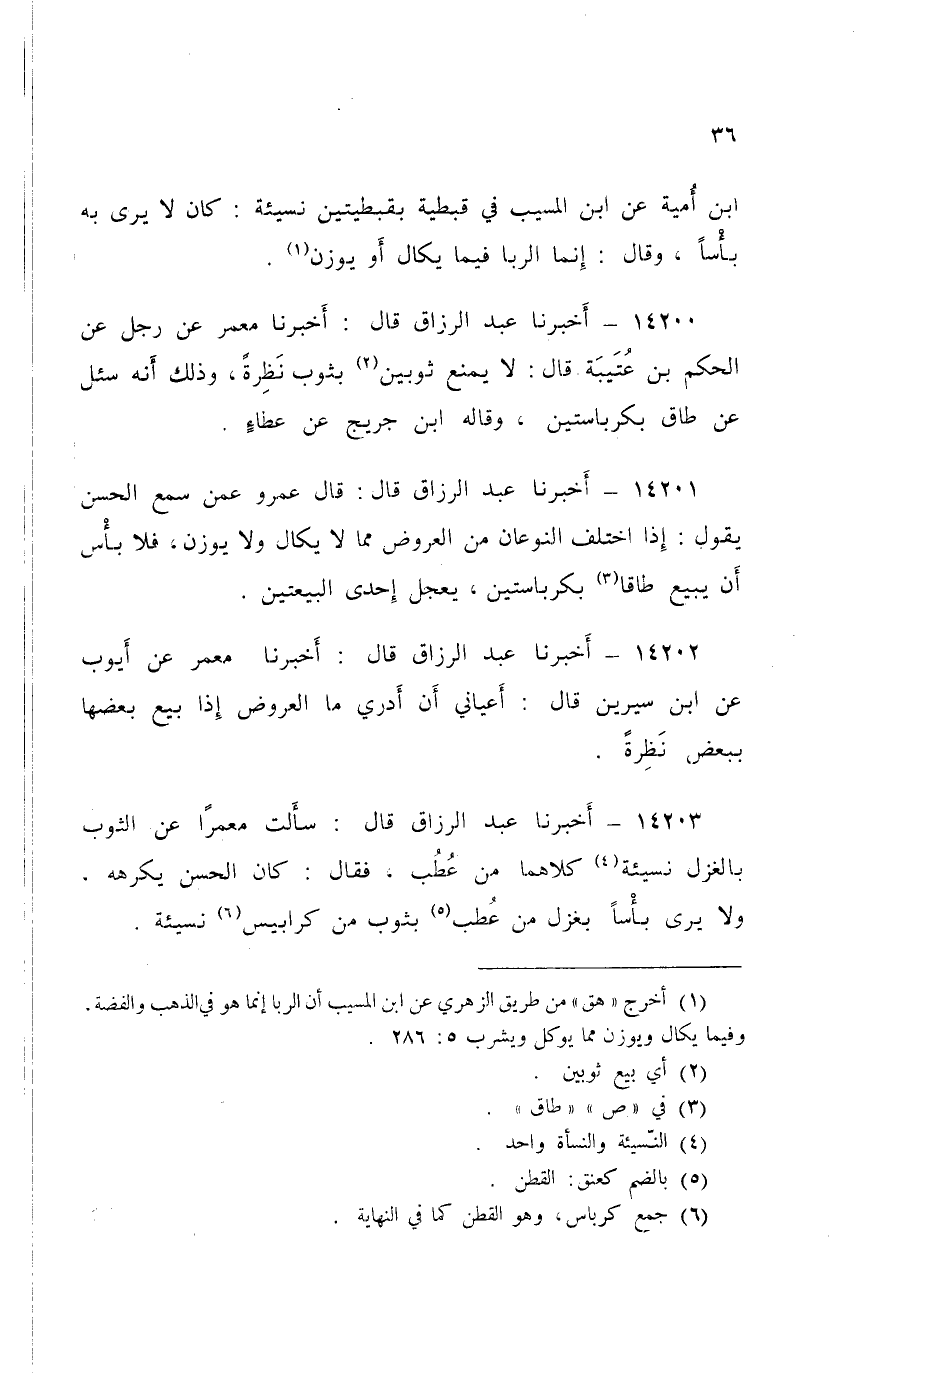 ٣٦
ابن أُمية عن ابن المسيب في قبطية بقبطيتين نسيئة : كان لا يرى به
بأْساً ، وقال : إِنما الربا فيما يكال أَو يوزن(١) .
١٤٢٠٠ – أَخبرنا عبد الرزاق قال : أَخبرنا معمر عن رجل عن
الحكم بن عُتَيبَة قال : لا يمنع ثوبين(٢) بثوب نَظِرةً ، وذلك أَنه سئل
عن طاق بكرباستين ، وقاله ابن جريج عن عطاءٍ .
١٤٢٠١ – أَخبرنا عبد الرزاق قال : قال عمرو عمن سمع الحسن
يقول : إِذا اختلف النوعان من العروض مما لا يكال ولا يوزن ، فلا بأْس
أَن يبيع طاقا(٣) بكرباستين ، يعجل إِحدى البيعتين .
١٤٢٠٢ – أَخبرنا عبد الرزاق قال : أَخبرنا معمر عن أَيوب
عن ابن سيرين قال : أَعياني أَن أَدري ما العروض إِذا بيع بعضها
ببعض نَظِرةً .
١٤٢٠٣ – أَخبرنا عبد الرزاق قال : سأَلت معمرًا عن الثوب
بالغزل نسيئة(٤) كلاهما من عُطُب ، فقال : كان الحسن يكرهه .
ولا يرى بأْساً بغزل من عُطب(٥) بثوب من كرابيس(٦) نسيئة .
(١) أخرج « هق » من طريق الزهري عن ابن المسيب أن الربا إنما هو في الذهب والفضة .
وفيما يكال ويوزن مما يوكل ويشرب ٥ : ٢٨٦ .
(٢) أي بيع ثوبين .
(٣) في « ص » « طاق » .
(٤) النّسيئة والنسأة واحد .
(٥) بالضم كعنق : القطن .
(٦) جمع كرباس ، وهو القطن كما في النهاية .